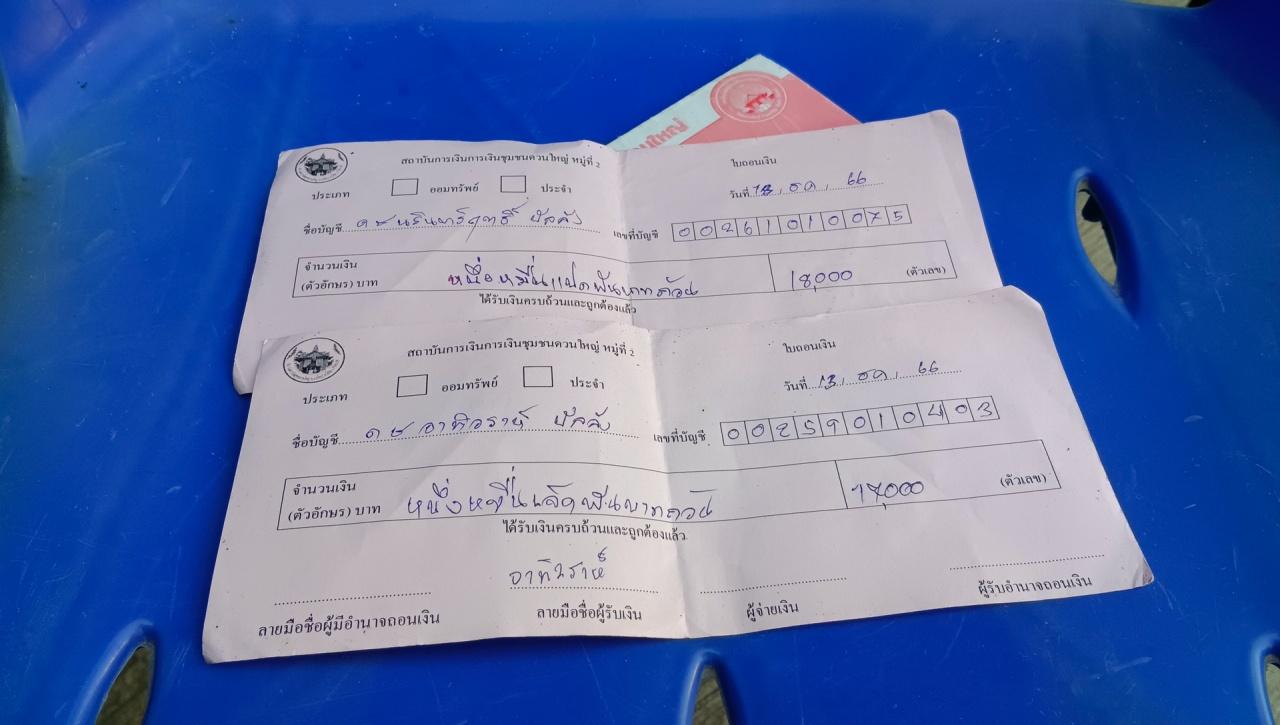 นใหญ่
สถาบันการเงินการเงินชุมชนควนใหญ่ หมู่ที่ 2
ใบถอนเงิน
ประเภท ออมทรัพย์ ประจำ
วันที่ 13 ธค 66
ชื่อบัญชี ดช นรินทร์ฤทธิ์ เลขที่บัญชี 00261010075
จำนวนเงิน
(ตัวอักษร) บาท หนึ่งหมื่นแปดพันบาทถ้วน 18,000 (ตัวเลข)
ได้รับเงินครบถ้วนและถูกต้องแล้ว
สถาบันการเงินการเงินชุมชนควนใหญ่ หมู่ที่ 2
ใบถอนเงิน
ประเภท ออมทรัพย์ ประจำ
วันที่ 13 ธค 66
ชื่อบัญชี ดช อาทิวราห์ เลขที่บัญชี 00259010403
จำนวนเงิน
(ตัวอักษร) บาท หนึ่งหมื่นเจ็ดพันบาทถ้วน 17,000 (ตัวเลข)
ได้รับเงินครบถ้วนและถูกต้องแล้ว
อาทิวราห์
ลายมือชื่อผู้มีอำนาจถอนเงิน ลายมือชื่อผู้รับเงิน ผู้จ่ายเงิน ผู้รับอำนาจถอนเงิน